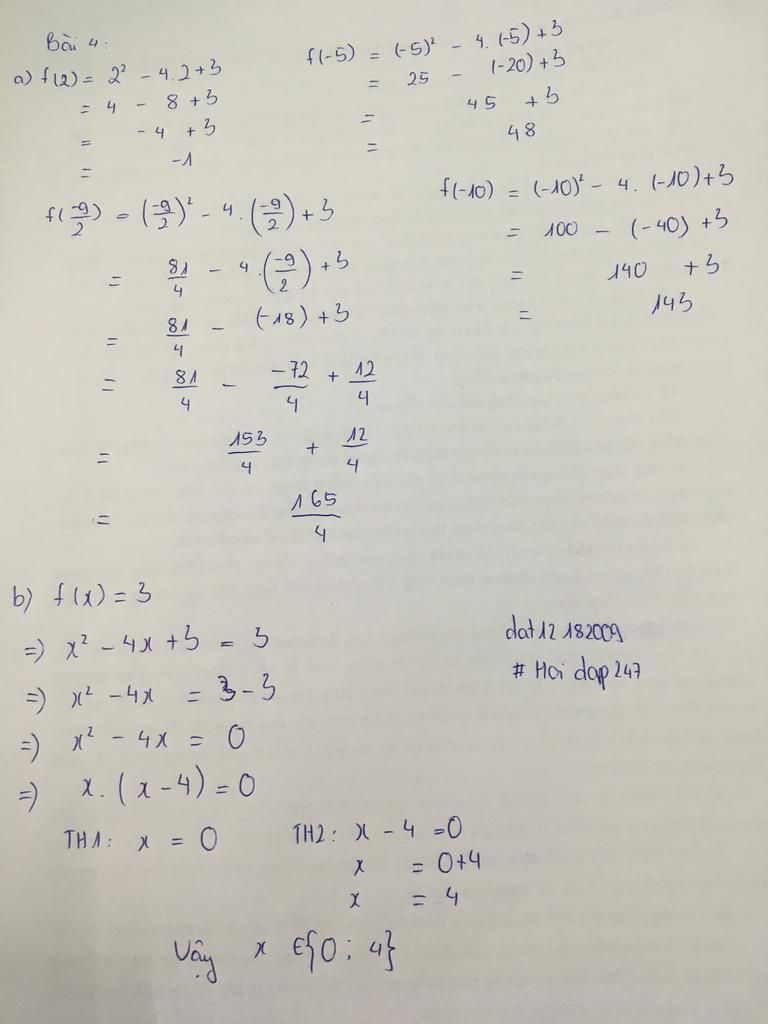 Bài 4:
a) f(2) = 2² - 4.2+3
= 4 - 8 +3
= -4 +3
= -1
f(-5) = (-5)² - 4.(-5)+3
= 25 - (-20)+3
= 45 +3
= 48
f(-9/2) = (-9/2)² - 4.(-9/2)+3
= 81/4 - 4.(-9/2)+3
= 81/4 - (-18)+3
= 81/4 - -72/4 + 12/4
= 153/4 + 12/4
= 165/4
f(-10) = (-10)² - 4.(-10)+3
= 100 - (-40) +3
= 140 +3
= 143
b) f(x) = 3
=) x² - 4x +3 = 3
=) x² - 4x = 3-3
=) x² - 4x = 0
=) x.(x-4) = 0
TH1: x = 0
TH2: x - 4 =0
x = 0+4
x = 4
Vậy x ∈{0; 4}
dat12182009
# Hoi dap 247